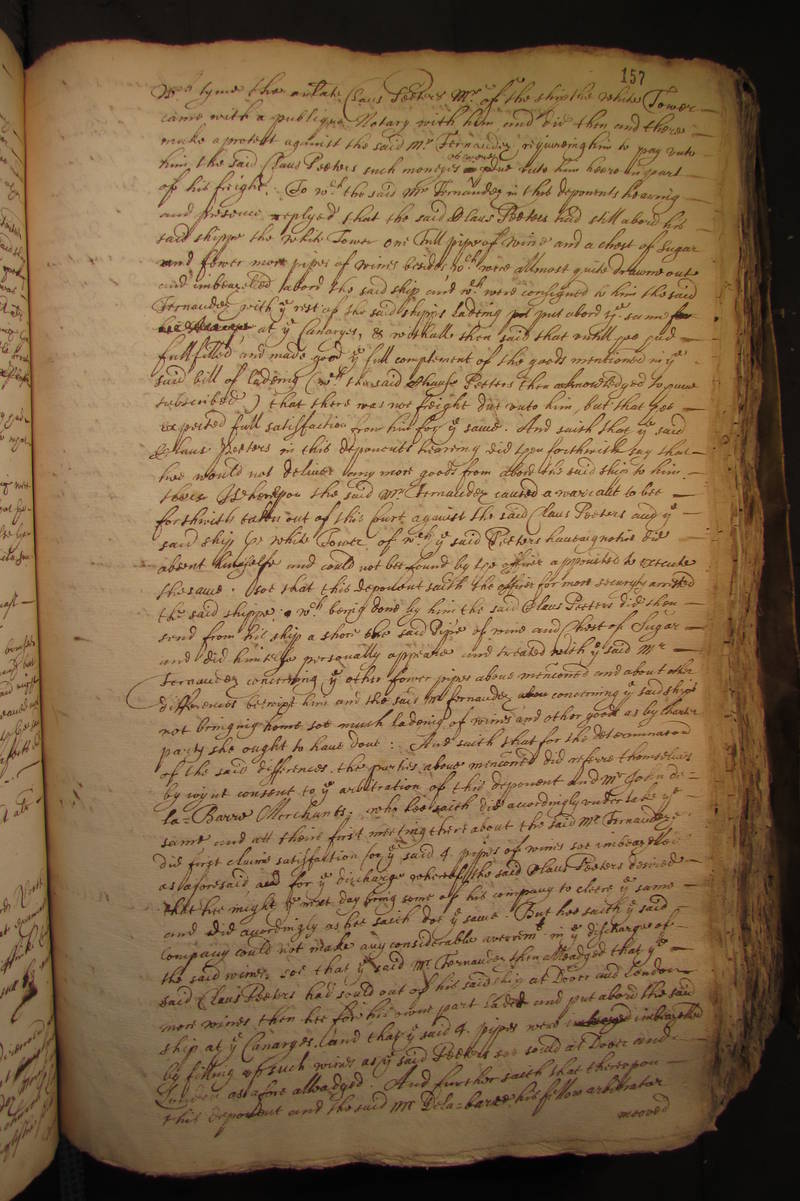 157
wch tyme the arlate Claus Peeters Mr. of the ship the white Tower
came with a publique Notary with him and did then and there
make a protest against the said Mr Fernandez requireing him to pay unto
him the said Claus Peeters such moneyes as were due unto him heere in part
of his freight. To wch the said Mr Fernandez in this deponents hearing
and presence replyed that the said Claus Peeters had still abord his
said shippe the white Tower one full pipe of wine and a chest of Sugar
and fower more pipes of wines besides wch were allmost quite drawne out
and imbeazelled abord the said ship and wch were consigned to him the said
Fernandez with ye rest of the said shipps lading put abord ye same
at ye Canaryes, & withall then said that untill hee had
fullfilled and made good ye full complement of the goods mentioned in ye
said bill of lading (wch the said Clause Peeters then acknowledged to have
subscribed) that there was not freight due unto him, but that hee
expected full satisfaction from him for ye same. And saith that ye said
Claus Peeters in this deponents hearing did upon forthwith say that
hee would not deliver any more goods from abord the said ship to him.
Whereupon the said Mr Fernandez caused a warrant to bee
forthwith taken out of this Court against the said Claus Peeters and ye
said ship ye white Tower, of wch ye said Peeters haveing notice did
absent himselfe and could not bee found by ye officer appointed to execute
the same. soe that this deponent saith the officer for more security arrested
the said shippe. wch being done by him the said Claus Peeters did then
send from his ship a shore the said Pipe of wine and Chest of Sugar
and did himselfe personally appeare and treated with ye said Mr
Fernandez concerning ye other fower pipes above mencioned and about other
differences betwixt him and the said Mr Fernandez concerning ye said ships
not bringing home soe much lading of wines and other goods as by charter
party she ought to have done: And saith that for the determinacion
of the said differences the parties above mencioned did referre themselves
by ioynt consent to ye arbitration of this deponent and Mr John de=
la=Barre Merchants, who hee saith did accordingly undertake ye
same and att their first meeting there about the said Mr Fernandez
did first claime satisfaction for ye said 4. pipes of wines soe imbeazelled
as aforesaid and for ye discharge whereof the said Claus Peeters desired
that hee might ye next day bring some of his company to cleere ye same
and did accordingly as hee saith doe ye same. But hee saith ye said
Company could not make any considerable averrmt in ye discharge of
the said wines, soe that ye said Mr. Fernandez then alleadged that ye
said Claus Peeters had sould out of his said ship at Dover and London
more wines then hee for his owne part laded and put abord the said
ship at ye Canaryes, and that ye said 4. pipes were imbeazelled
by filling up such wines as ye said Peeters soe sould at Dover and
London as afore alleadged. And further saith that thereupon
this deponent and the said Mr Dela=barre his fellow arbitrator
mooved